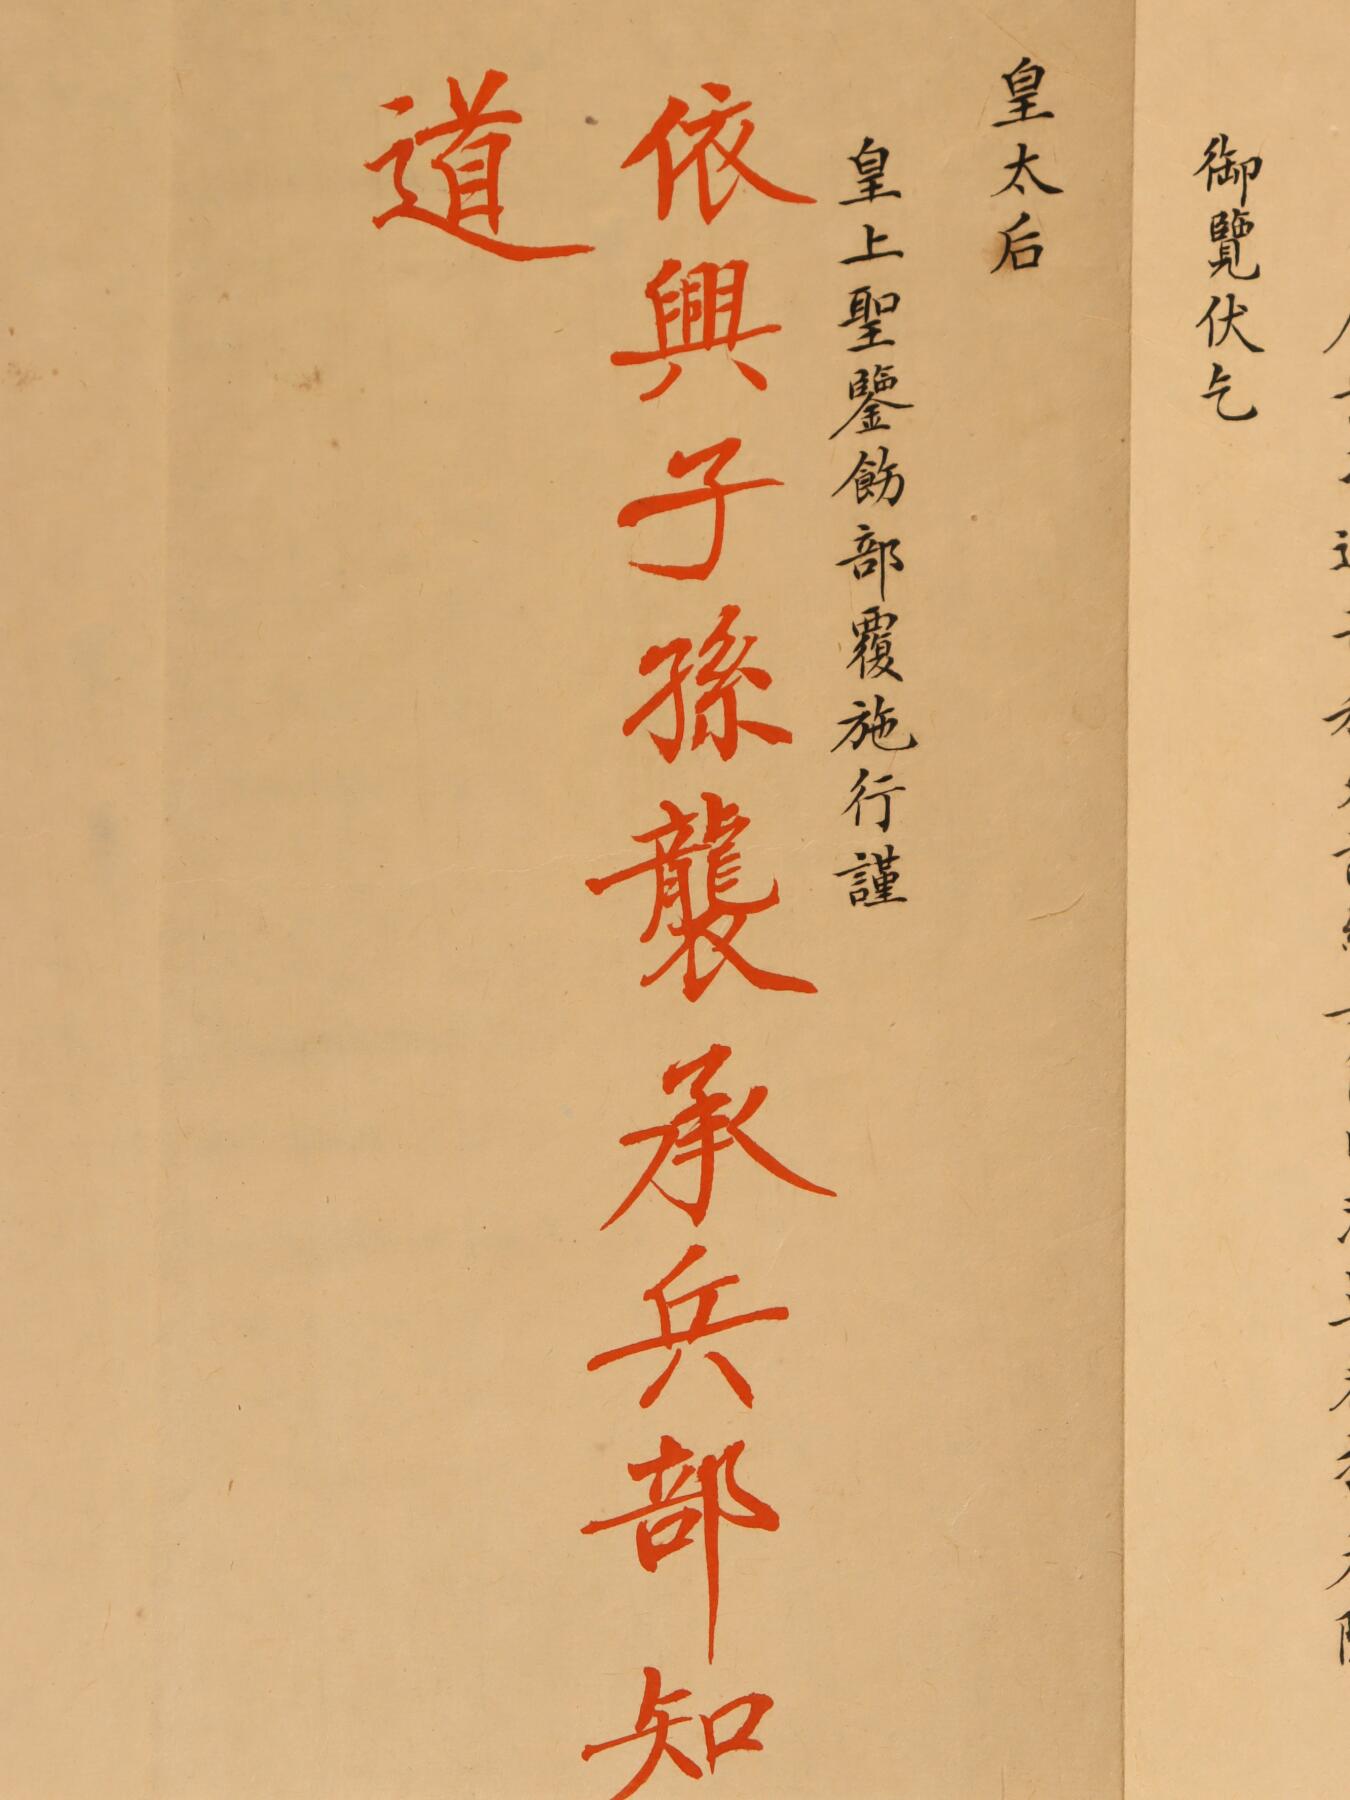 御覽伏乞
皇太后
皇上聖鑒飭部覆施行謹
依興子孫襲承兵部知
道